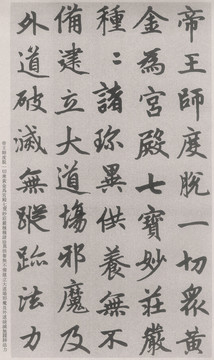 帝王師度脫一切衆黃
金為宮殿七寶妙莊嚴
種〻諸珎異供養無不
備建立大道塲邪魔及
外道破滅無蹤跡法力